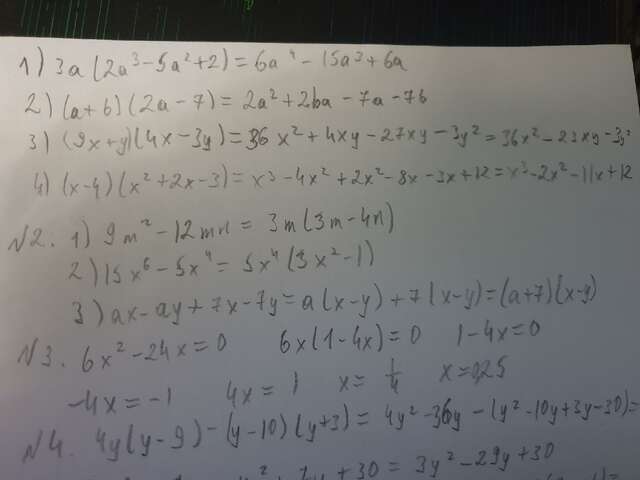 1) 3a(2a³-5a²+2)=6a⁴-15a³+6a
2) (a+b)(2a-7)=2a²+2ba-7a-7b
3) (9x+y)(4x-3y)=36x²+4xy-27xy-3y²=36x²-23xy-3y²
4) (x-4)(x²+2x-3)=x³-4x²+2x²-8x-3x+12=x³-2x²-11x+12
N2. 1) 9m²-12mn=3m(3m-4n)
2) 15x⁶-5x⁴=5x⁴(3x²-1)
3) ax-ay+7x-7y=a(x-y)+7(x-y)=(a+7)(x-y)
N3. 6x²-24x=0 6x(1-4x)=0 1-4x=0
-4x=-1 4x=1 x=1/4 x=0,25
N4. 4y(y-9)-(y-10)(y+3)=4y²-36y-(y²-10y+3y-30)=
+30=3y²-29y+30